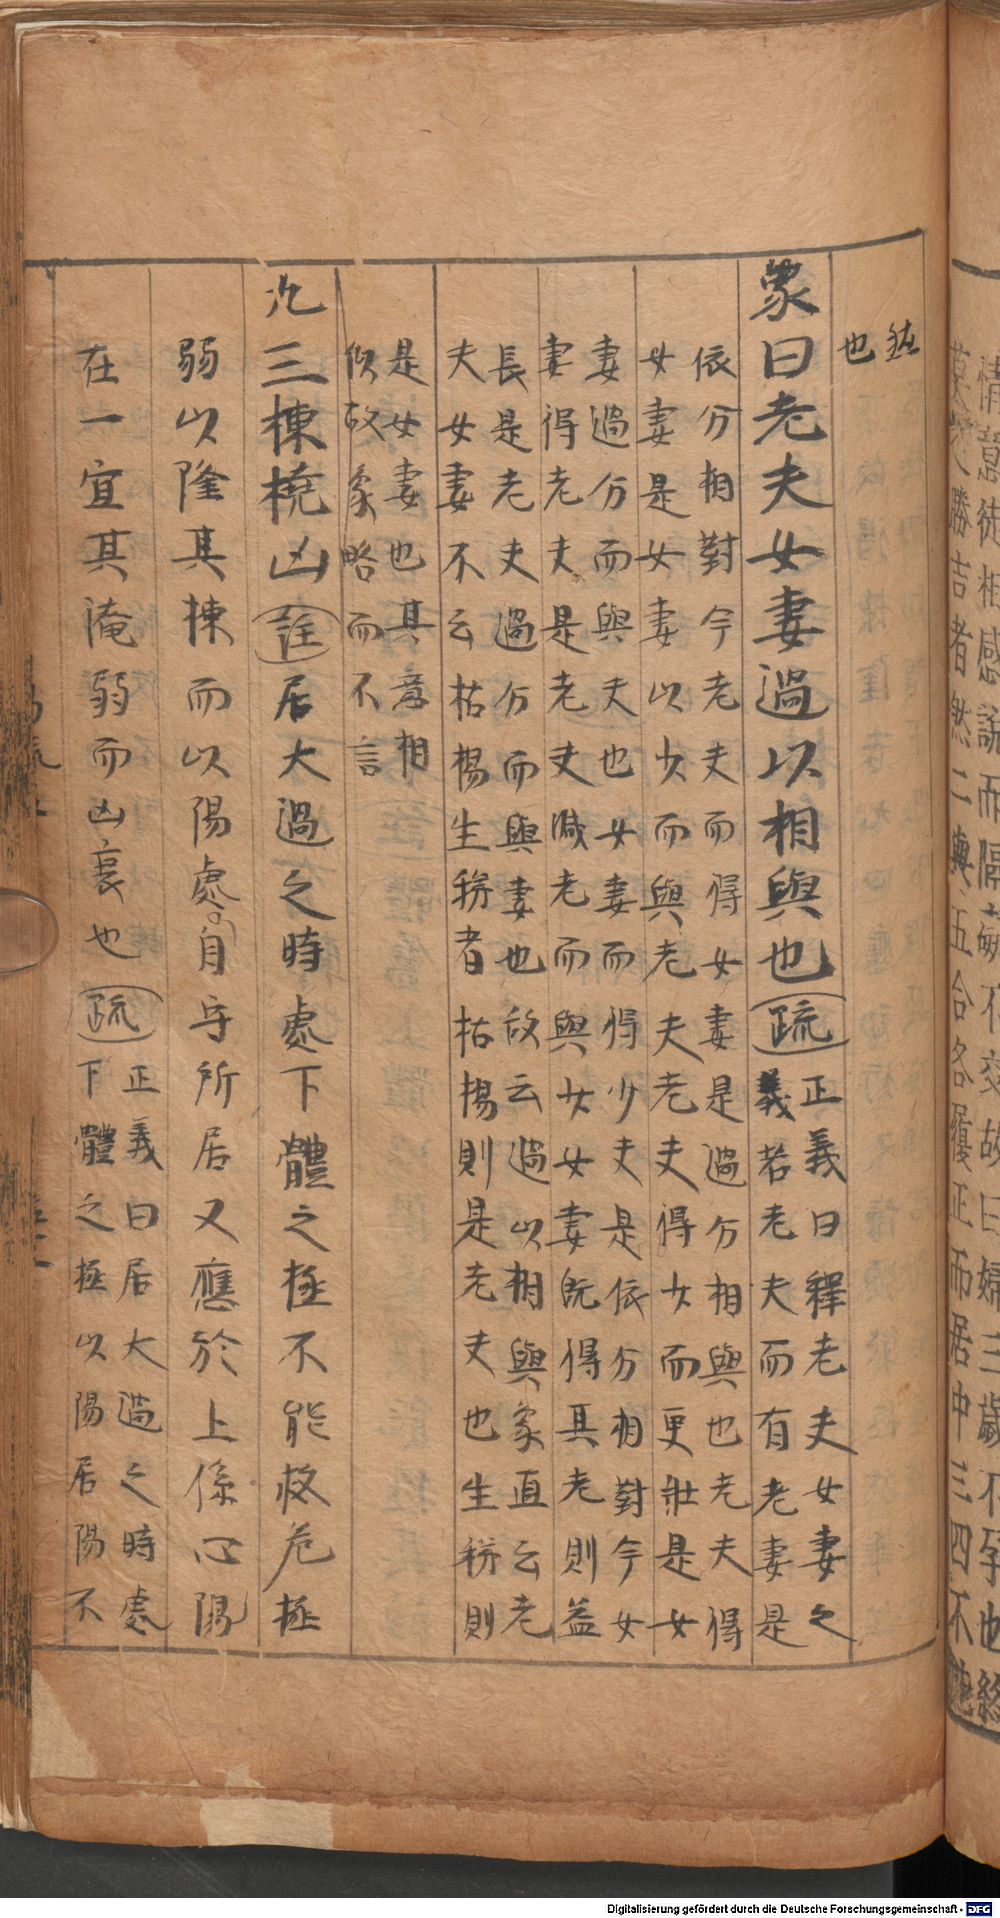 情意徒相感說而隔礙不交故曰婦三歲不孕也終
莫之勝吉者然二與五合各履正而居中三四不
然
也
象曰老夫女妻過以相與也疏
正義曰釋老夫女妻之
義若老夫而有老妻是
依分相對今老夫而得女妻是過分相與也老夫得
女妻是女妻以少而與老夫老夫得女而更壯是女
妻過分而與夫也女妻而得少夫是依分相對今女
妻得老夫是老夫減老而與女女妻既得其老則益
長是老夫過分而與妻也故云過以相與象直云老
夫女妻不云枯楊生稊者枯楊則是老夫也生稊則
是女妻也其意相
似故象略而不言
九三棟橈凶註居大過之時處下體之極不能救危極
弱以隆其棟而以陽處自守所居又應於上係心陽
在一宜其淹弱而凶衰也疏
正義曰居大過之時處
下體之極以陽居陽不
Digitalisierung gefördert durch die Deutsche Forschungsgemeinschaft - DFG